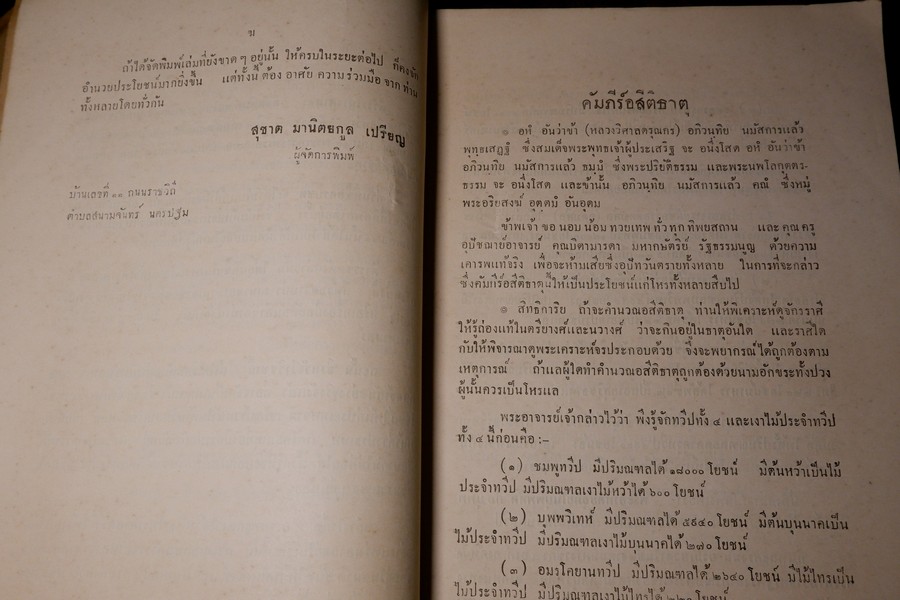 ฆ
ถ้าได้จัดพิมพ์เล่มที่ยังขาด ๆ อยู่นั้น ให้ครบในระยะต่อไป ก็คงจัก
อำนวยประโยชน์มากยิ่งขึ้น แต่ทั้งนี้ ต้อง อาศัย ความ ร่วมมือ จาก ท่าน
ทั้งหลายโดยทั่วกัน
สุชาต มานิตยกูล เปรียญ
ผู้จัดการพิมพ์
บ้านเลขที่ ๑๑ ถนนราชวิถี
ตำบลสนามจันทร์ นครปฐม
คัมภีร์อสีติธาตุ
๏ อหํ อันว่าข้า (หลวงวิศาลดรุณกร) อภิวนฺทิย นมัสการแล้ว
พุทฺธเสฏฺฐํ ซึ่งสมเด็จพระพุทธเจ้าผู้ประเสริฐ จะ อนึ่งโสด อหํ อันว่าข้า
อภิวนฺทิย นมัสการแล้ว ธมฺมํ ซึ่งพระปริยัติธรรม และพระนพโลกุตตร-
ธรรม จะ อนึ่งโสด และข้านั้น อภิวนฺทิย นมัสการแล้ว คณํ ซึ่งหมู่
พระอริยสงฆ์ อุตฺตมํ อันอุดม
ข้าพเจ้า ขอ นอบ น้อม ทวยเทพ ทั่ว ทุก ทิพยสถาน และ คุณ ครู
อุปัชฌาย์อาจารย์ คุณบิดามารดา มหากษัตริย์ รัฐธรรมนูญ ด้วยความ
เคารพแท้จริง เพื่อจะห้ามเสียซึ่งอุปัทวันตรายทั้งหลาย ในการที่จะกล่าว
ซึ่งคัมภีร์อสีติธาตุนี้ให้เป็นประโยชน์แก่โหรทั้งหลายสืบไป
๏ สิทธิการิย ถ้าจะคำนวณอสีติธาตุ ท่านให้พิเคราะห์ดูจักรราศี
ให้รู้ถ่องแท้ในตรียางค์และนวางค์ ว่าจะกินอยู่ในธาตุอันใด และราศีใด
กับให้พิจารณาดูพระเคราะห์จรประกอบด้วย จึงจะพยากรณ์ได้ถูกต้องตาม
เหตุการณ์ ถ้าแลผู้ใดทำคำนวณอสีติธาตุถูกต้องด้วยนามอักขระทั้งปวง
ผู้นั้นควรเป็นโหรแล
พระอาจารย์เจ้ากล่าวไว้ว่า พึงรู้จักทวีปทั้ง ๔ และเงาไม้ประจำทวีป
ทั้ง ๔ นี้ก่อนคือ :–
(๑) ชมพูทวีป มีปริมณฑลได้ ๑๘๐๐๐ โยชน์ มีต้นหว้าเป็นไม้
ประจำทวีป มีปริมณฑลเงาไม้หว้าได้ ๖๐๐ โยชน์
(๒) บุพพวิเทห์ มีปริมณฑลได้ ๕๙๔๐ โยชน์ มีต้นบุนนาคเป็น
ไม้ประจำทวีป มีปริมณฑลเงาไม้บุนนาคได้ ๒๗๐ โยชน์
(๓) อมรโคยานทวีป มีปริมณฑลได้ ๒๖๔๐ โยชน์ มีไม้ไทรเป็น
ไม้ประจำทวีป มีปริมณฑลเงาไม้ไทรได้ ๒๒๐ โยชน์